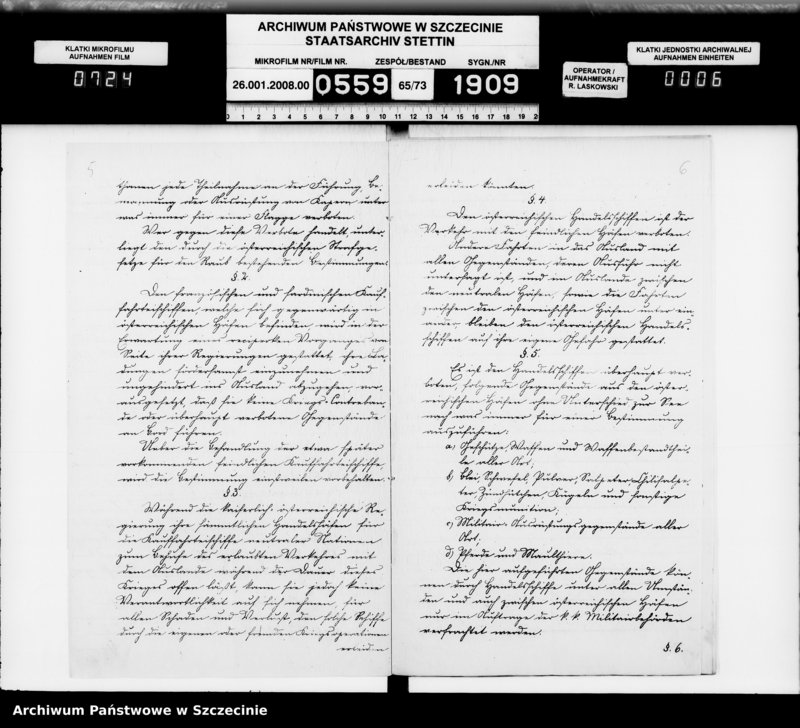 ARCHIWUM PAŃSTWOWE W SZCZECINIE
STAATSARCHIV STETTIN
KLATKI MIKROFILMU
AUFNAHMEN FILM
0724
MIKROFILM NR/FILM NR.
ZESPÓŁ/BESTAND
SYGN./NR
26.001.2008.00
0559
65/73
1909
OPERATOR /
AUFNAHMEKRAFT
R. LASKOWSKI
KLATKI JEDNOSTKI ARCHIWALNEJ
AUFNAHMEN EINHEITEN
0006
0 1 2 3 4 5 6 7 8 9 10 11 12 13 14 15 16 17 18 19 20
5
thanen jede Theilnahme an der Führung, Be-
mannung oder Ausrüstung von Kapern unter
was immer für einer Flagge verboten.
Wer gegen diese Verbote handelt, unter-
liegt den durch die österreichischen Strafge-
setze für den Raub bestehenden Bestimmungen.
§. 2.
Den französischen und sardinischen Kauf-
fahrteischiffen, welche sich gegenwärtig in
österreichischen Häfen befinden, wird in der
Erwartung eines reciproken Vorganges von
Seite ihrer Regierungen gestattet, ihre La-
dungen einzunehmen und
ungehindert ins Ausland abzugehen, vor-
ausgesetzt, daß sie keine Kriegs-Contreban-
de oder überhaupt verbotene Gegenstände
an Bord führen.
Ueber die Behandlung der etwa später
vorkommenden feindlichen Kauffahrteischiffe
wird die Bestimmung einstweilen vorbehalten.
§. 3.
Während die kaiserlich österreichische Re-
gierung ihre sämmtlichen Handelshäfen für
die Kauffahrteischiffe neutraler Nationen
zum Behufe des erlaubten Verkehres mit
dem Auslande während der Dauer dieses
Krieges offen läßt, kann sie jedoch keine
Verantwortlichkeit auf sich nehmen, für
allen Schaden und Verlust, den solche Schiffe
durch die eigenen oder fremden Kriegsoperationen
erleiden
6
erleiden könnten.
§. 4.
Den österreichischen Handelsschiffen ist der
Verkehr mit den feindlichen Häfen verboten.
Andere Fahrten in das Ausland mit
allen Gegenständen, deren Ausfuhr nicht
untersagt ist, und im Auslande zwischen
den neutralen Häfen, sowie die Fahrten
zwischen den österreichischen Häfen unter ein-
ander bleiben den österreichischen Handels-
schiffen auf ihre eigene Gefahr gestattet.
§. 5.
Es ist den Handelsschiffen überhaupt ver-
boten, folgende Gegenstände aus den öster-
reichischen Häfen ohne Unterschied zur See
nach was immer für einer Bestimmung
auszuführen:
a) Geschütze, Waffen und Waffenbestandthei-
le aller Art.
b) Blei, Schwefel, Pulver, Salpeter, Chilisalpe-
ter, Zündhütchen, Kugeln und sonstige
Kriegsmunition;
c) Militair-Ausrüstungsgegenstände aller
Art.
d) Pferde und Maulthiere.
Die hier aufgeführten Gegenstände kön-
nen durch Handelsschiffe unter allen Umstän-
den und auch zwischen österreichischen Häfen
nur im Auftrage der k. k. Militairbehörden
verfrachtet werden.
§. 6.
Archiwum Państwowe w Szczecinie